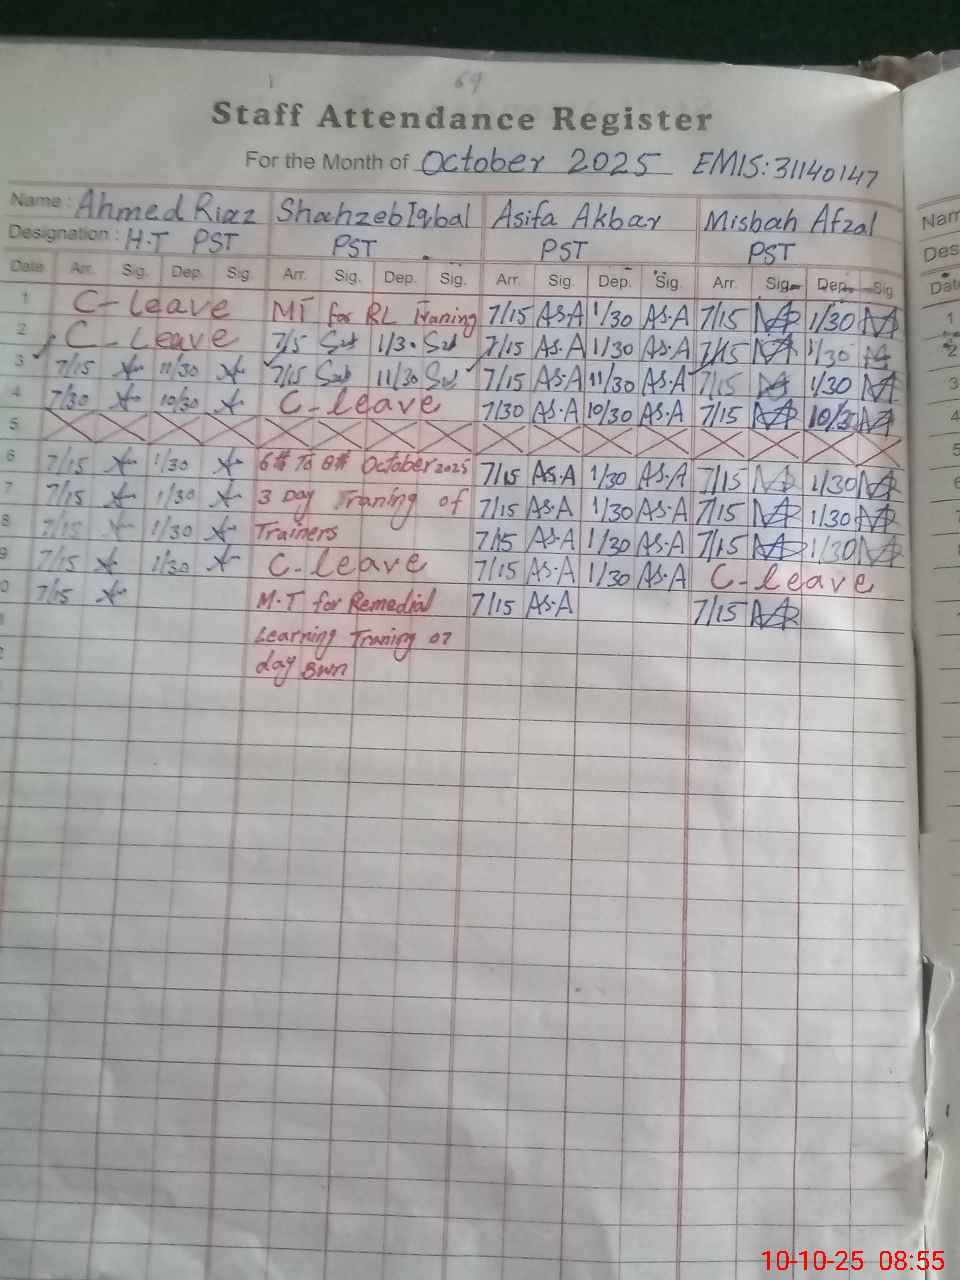 69
Staff Attendance Register
For the Month of October 2025 EMIS:31140147
Name: Ahmed Riaz Shahzeb Iqbal Asifa Akbar Misbah Afzal Nam
Designation: H.T PST PST PST PST Des
Date Arr. Sig. Dep. Sig. Arr. Sig. Dep. Sig. Arr. Sig. Dep. Sig. Arr. Sig. Dep. Sig Dat
1 C-leave MT for RL Traning 7/15 AS.A 1/30 AS.A 7/15 1/30 1
2 C-Leave 7/5 1/30 7/15 AS.A 1/30 AS.A 7/15 1/30 2
3 7/15 11/30 7/15 11/30 7/15 AS.A 11/30 AS.A 7/15 1/30 3
4 7/30 10/30 C-leave 7/30 AS.A 10/30 AS.A 7/15 10/30 4
5 5
6 7/15 1/30 6th To 8th October 2025 7/15 AS.A 1/30 AS.A 7/15 1/30
7 7/15 1/30 3 Day Traning of 7/15 AS.A 1/30 AS.A 7/15 1/30
8 7/15 1/30 Trainers 7/15 AS.A 1/30 AS.A 7/15 1/30
9 7/15 1/30 C-leave 7/15 AS.A 1/30 AS.A C-leave
0 7/15 M.T for Remedial 7/15 AS.A 7/15
Learning Traning 07
day Bwn
10-10-25 08:55